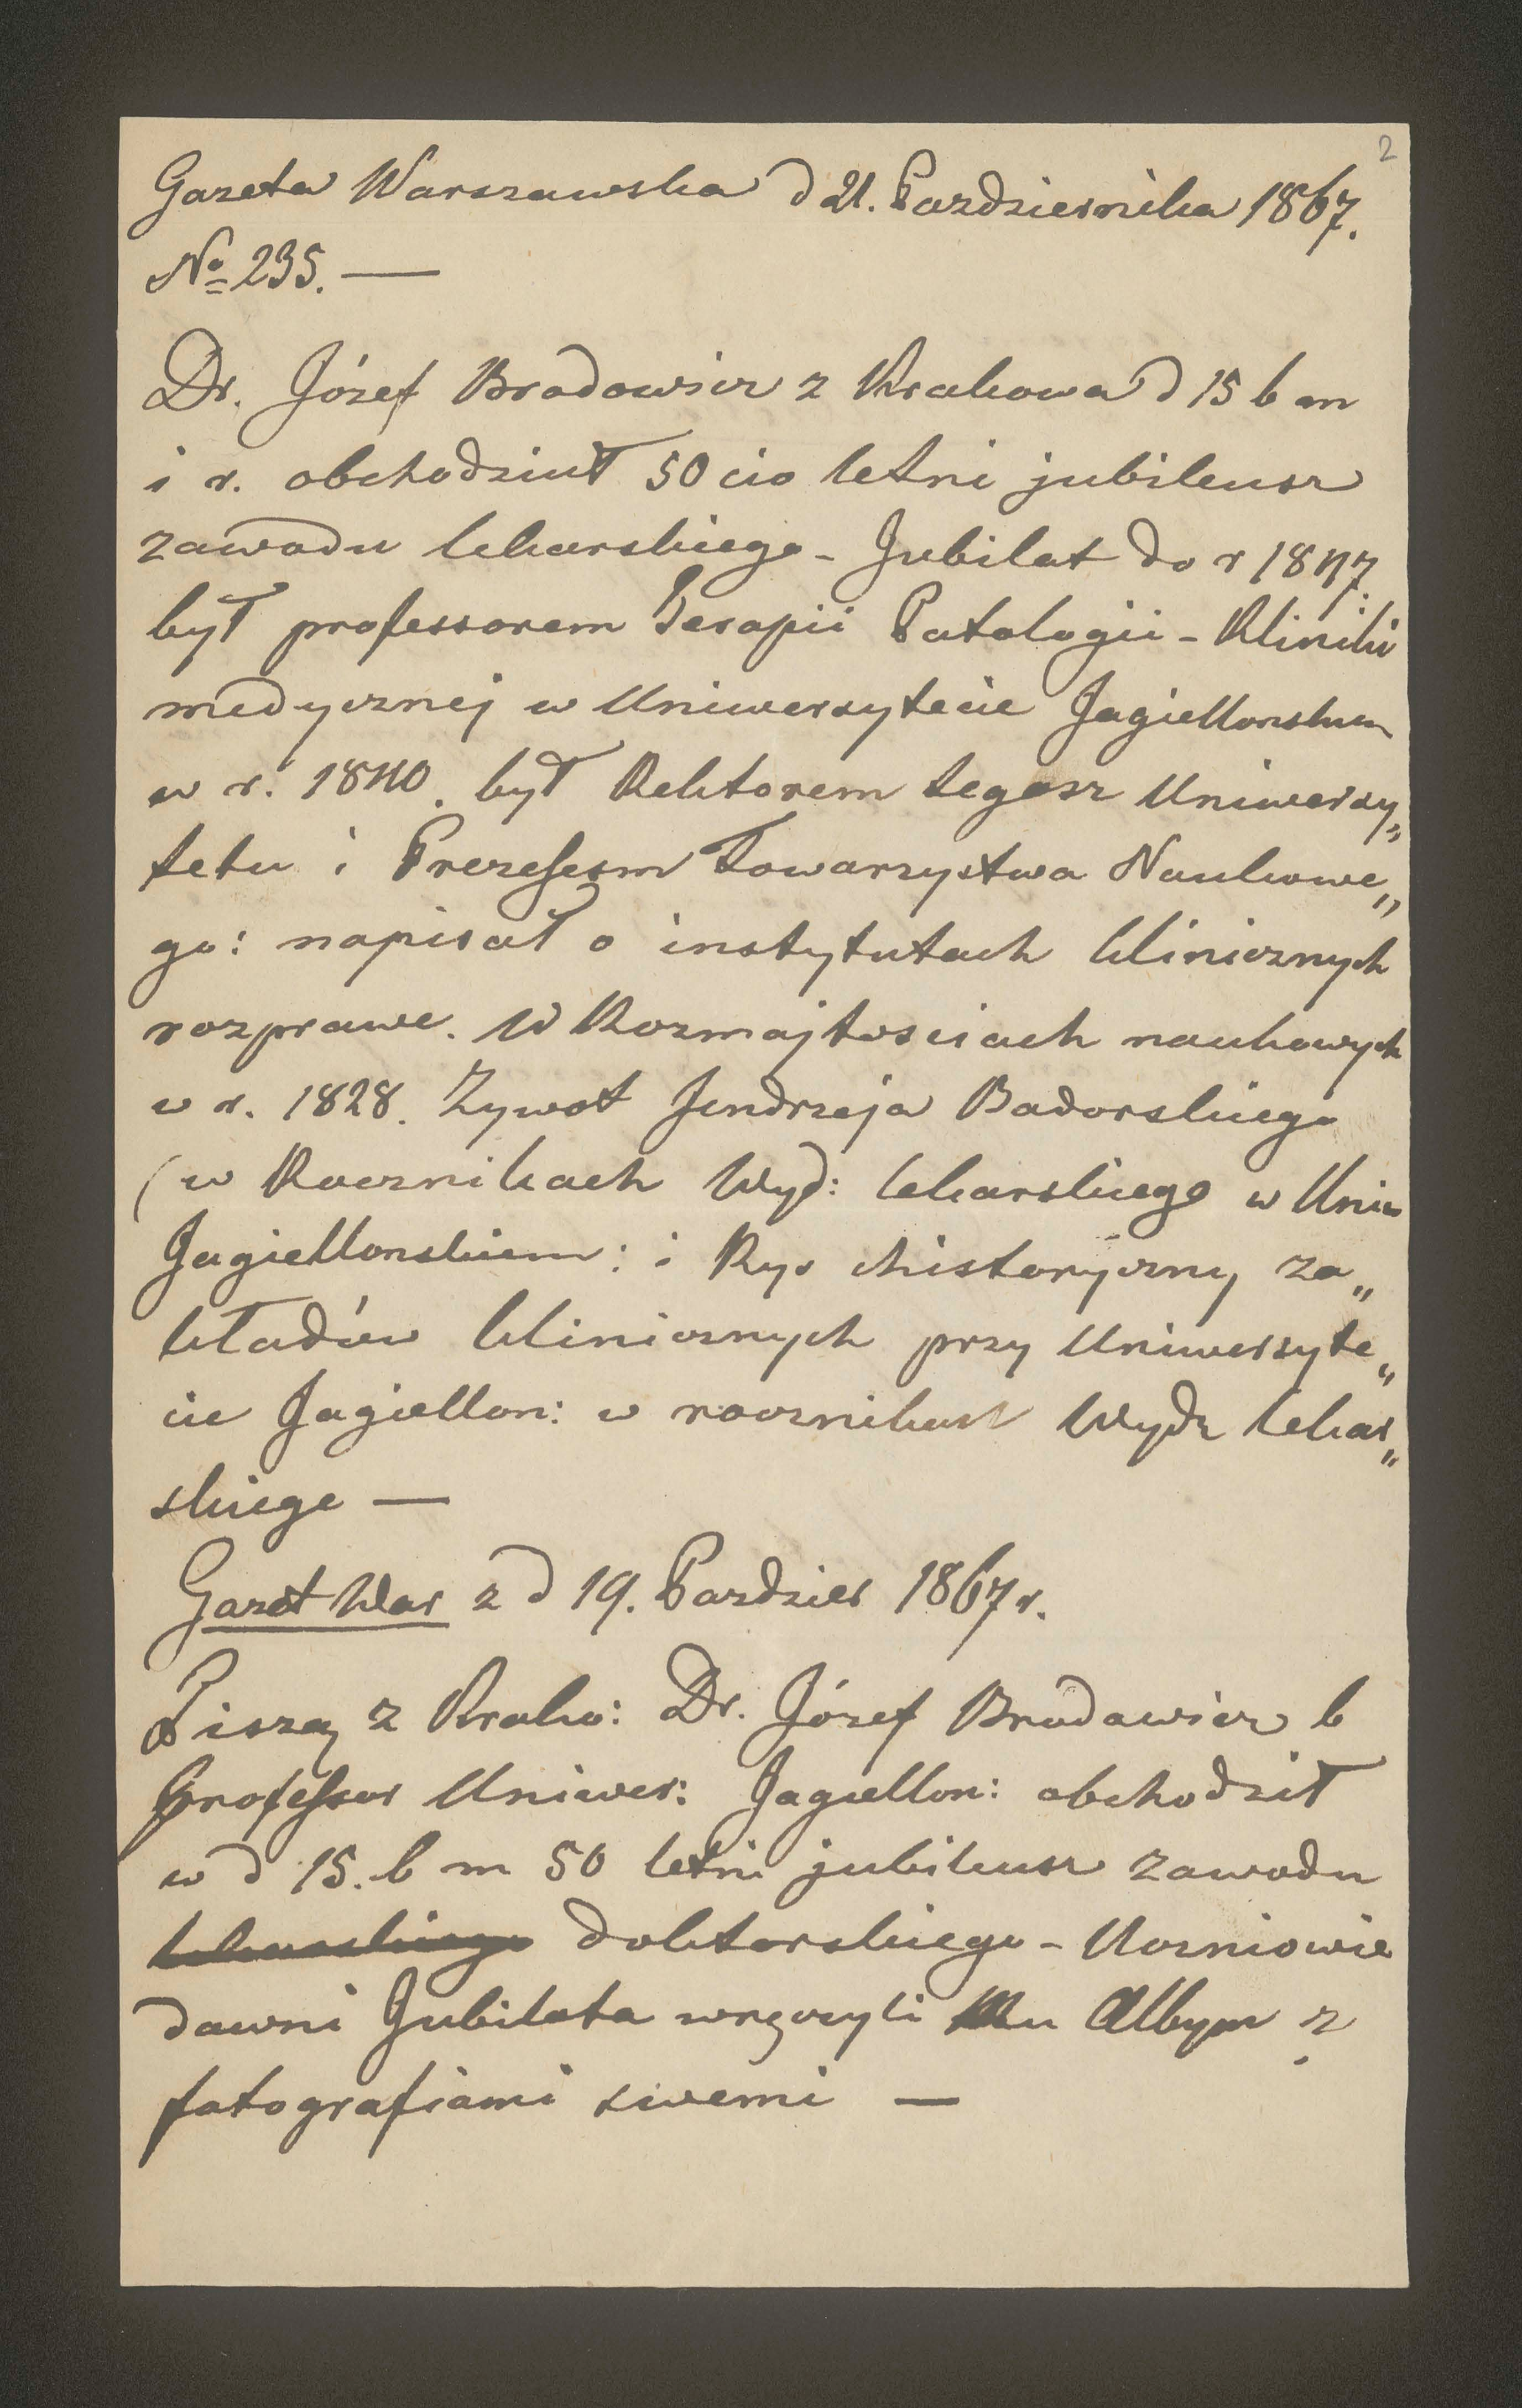 2
Gazeta Warszawska d 21. Pazdziernika 1867.
No 235. —
Dr. Józef Brodowicz z Krakowa d 15 b m
i r. obchodziuł 50 cio letni jubileusz
zawodu lekarskiego - Jubilat do r 1847.
był professorem Terapii Patologii - Kliniki
medycznej w Uniwersytecie Jagiellonskiem
w r. 1840. był Rektorem tegosz Uniwersy„
tetu i Prezesem Towarzystwa Naukowe„
go: napisał o instytutach klinicznych
rozprawe. W Rozmajtosciach naukowych
w r. 1828. Zywot Jendrzeja Badorskiego
(w Rocznikach Wyd: lekarskiego w Uniw
Jagiellonskiem: i Rys chistoryczny za„
kładów klinicznych przy Uniwersyte„
cie Jagiellon: w rocznikach Wydz lekar„
skiego —
Gazet War z d 19. Pazdzier 1867 r.
Piszą z Krako: Dr. Józef Brodawicz b
Professor Uniwer: Jagiellon: obchodził
w d 15. b m 50 letni jubileusz zawodu
lekarskiego doktorskiego - Uczniowie
dawni Jubilata wręczyli Mu Albym z
fotografiami swemi —